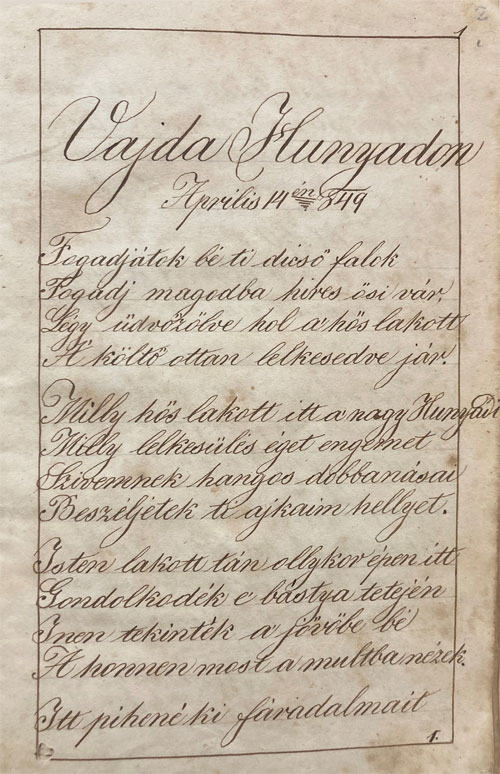 2
1
Vajda Hunyadon
Aprilis 14én 849
Fogadjátok bé ti dicső falok
Fogadj magadba hires ősi vár,
Légy üdvözölve hol a hős lakott
A költő ottan lelkesedve jár.
Milly hős lakott itt a nagy Hunyádi
Milly lelkesülés éget engemet
Szivemnek hangos dobbanásai
Beszéljetek ti ajkaim hellyet.
Isten lakott tán ollykor épen itt
Gondolkodék e bástya tetején
Inen tekinték a jövőbe bé
A honnen most a multba nézek.
Itt pihené ki fáradalmait
1.